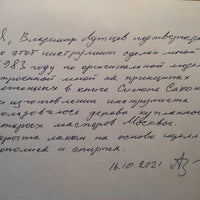 Я, Владимир Лупцов подтвержда
то этот инструмент сделан мной
1983 году по оригинальной модел
строенной мной на принципах
ложенных в книге Симоне Сакон
изготовлении инструмента
ользовалось дерево купленное
старых мастеров Москвы.
крыта лаком на основе
прополиса и спирта.
16.10.2021.